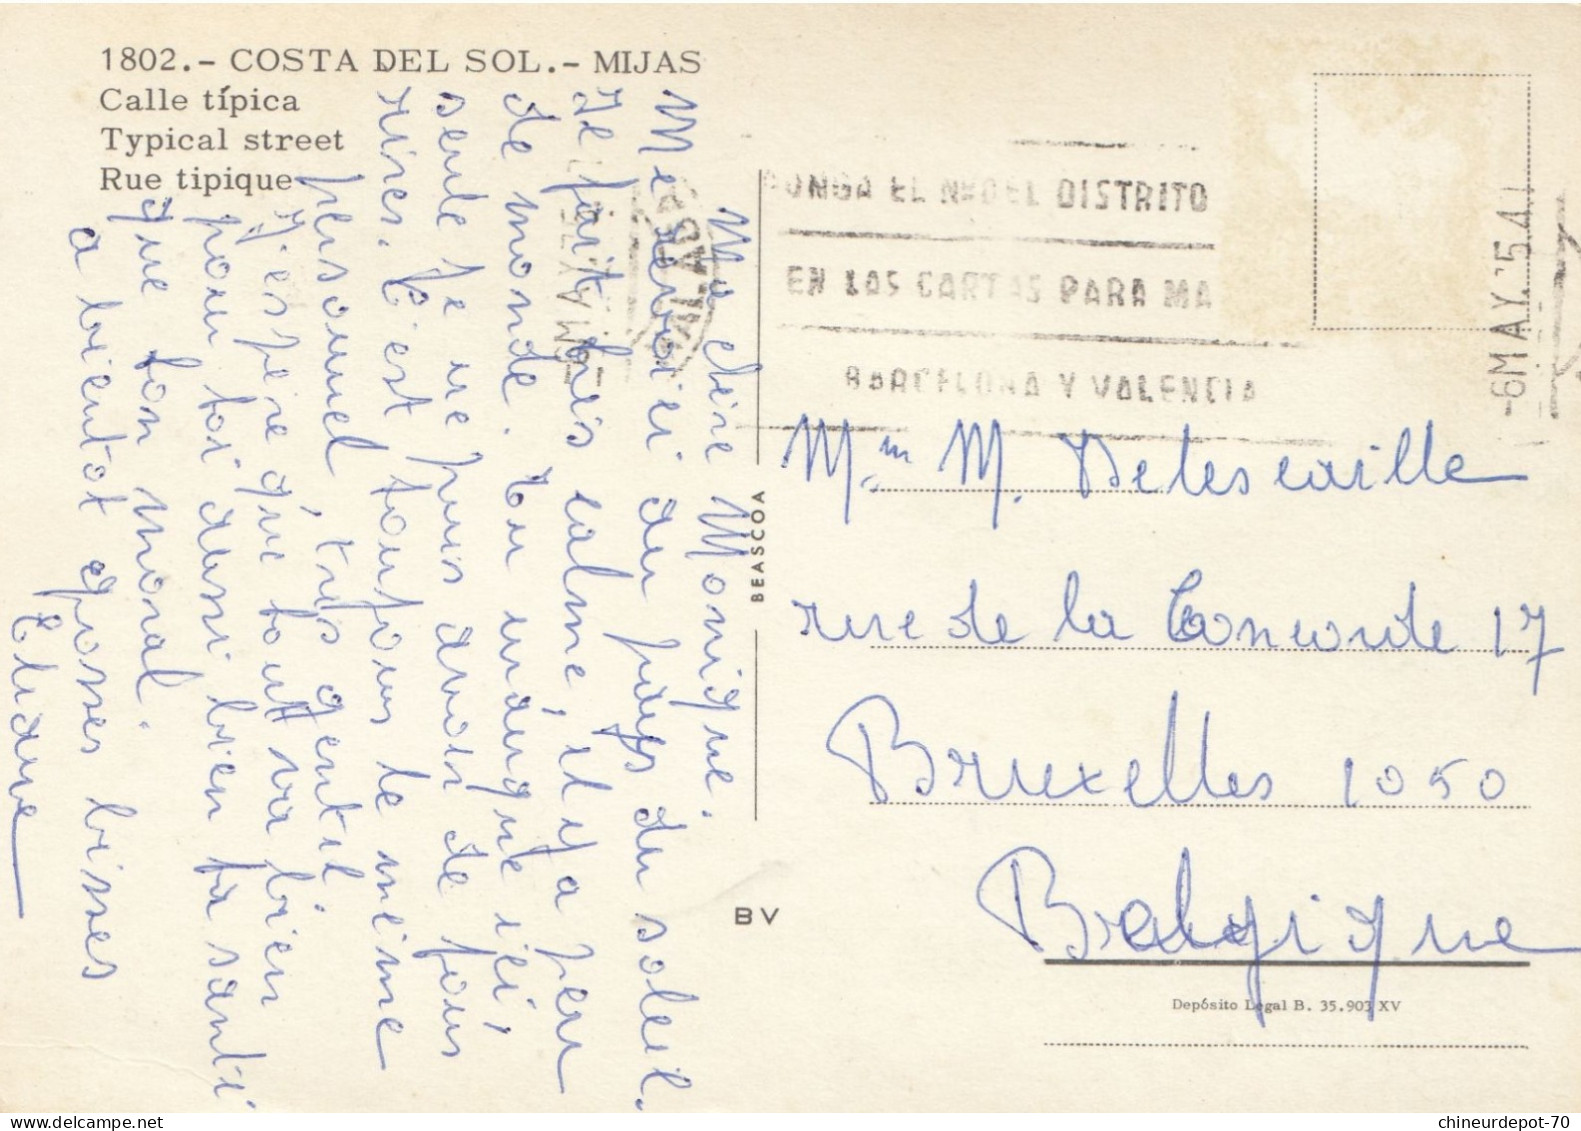 1802.- COSTA DEL SOL.- MIJAS
Calle típica
Typical street
Rue tipique
Ma chère Monique.
Me voici au pays du soleil.
Je fait très calme, il y a peu
de monde. Tu manque ici,
seule je ne puis avoir de fous
rires. C'est toujours le même
personnel, très gentil.
J'espère que tout va bien
pour toi aussi bien ta santé
que ton moral.
a bientot grosses bises
Eliane
BEASCOA
BV
PONGA EL Nº DEL DISTRITO
EN LAS CARTAS PARA MA
BARCELONA Y VALENCIA
-6 MAY.75
MALAGA
Mme M. Delescaille
rue de la Concorde 17
Bruxelles 1050
Belgique
Depósito Legal B. 35.903 XV
chineurdepot-70